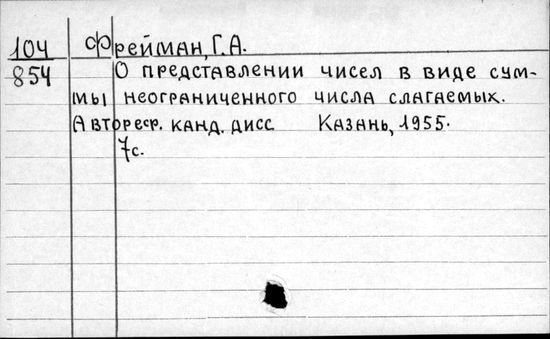 104 Фрейман, Г.А.
854 О представлении чисел в виде сум-
мы неограниченного числа слагаемых.
Автореф. канд. дисс Казань, 1955.
7с.